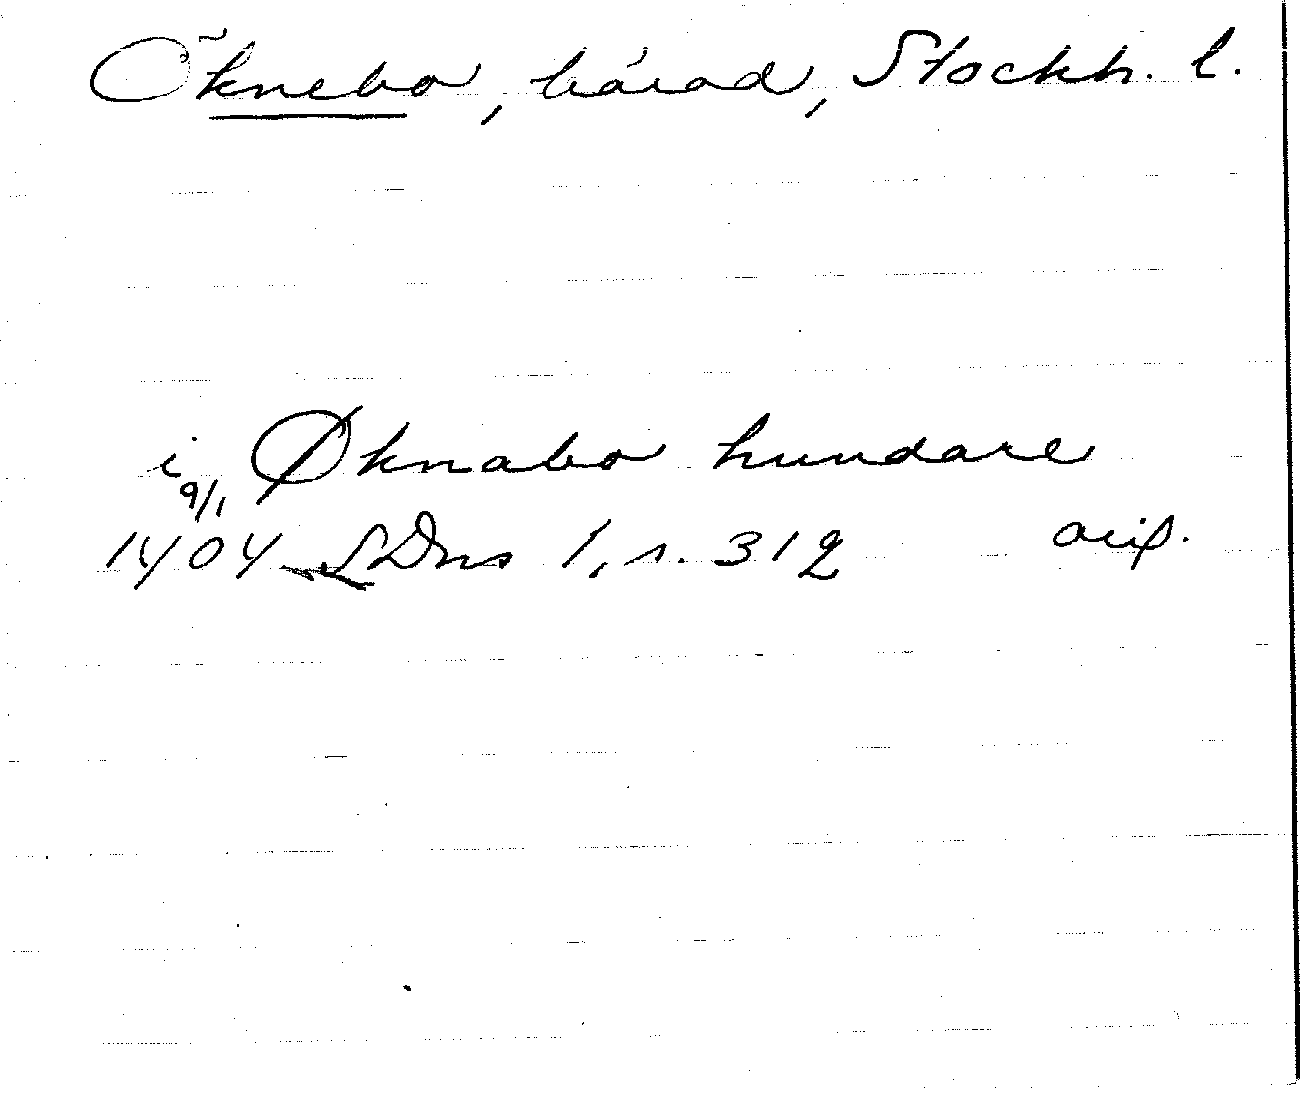 Öknebo, härad, Stockh. l.
i Øknabo hundare
9/1
1404 SDns 1, s. 312 orig.